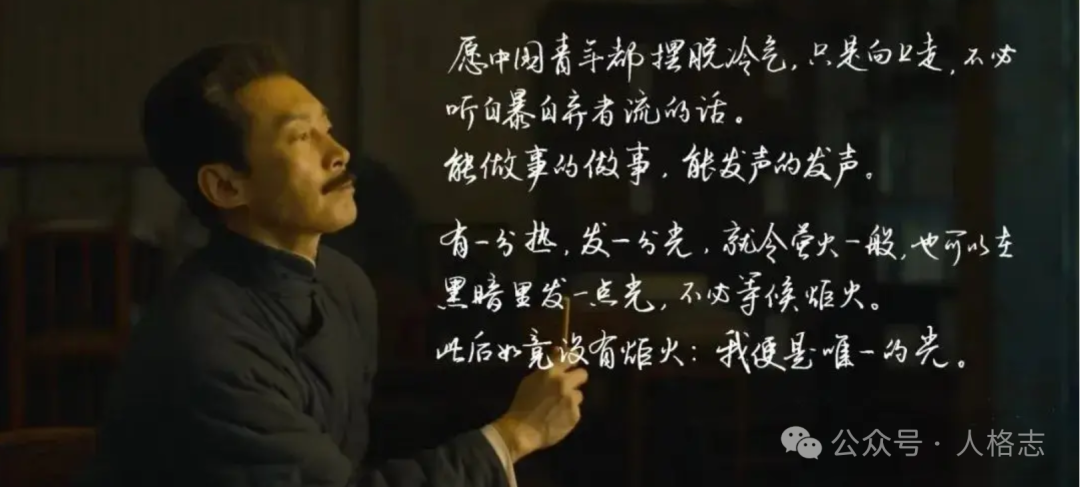 愿中国青年都摆脱冷气，只是向上走，不必
听自暴自弃者流的话。
能做事的做事，能发声的发声。
有一分热，发一分光，就令萤火一般，也可以在
黑暗里发一点光，不必等候炬火。
此后如竟没有炬火：我便是唯一的光。
公众号·人格志